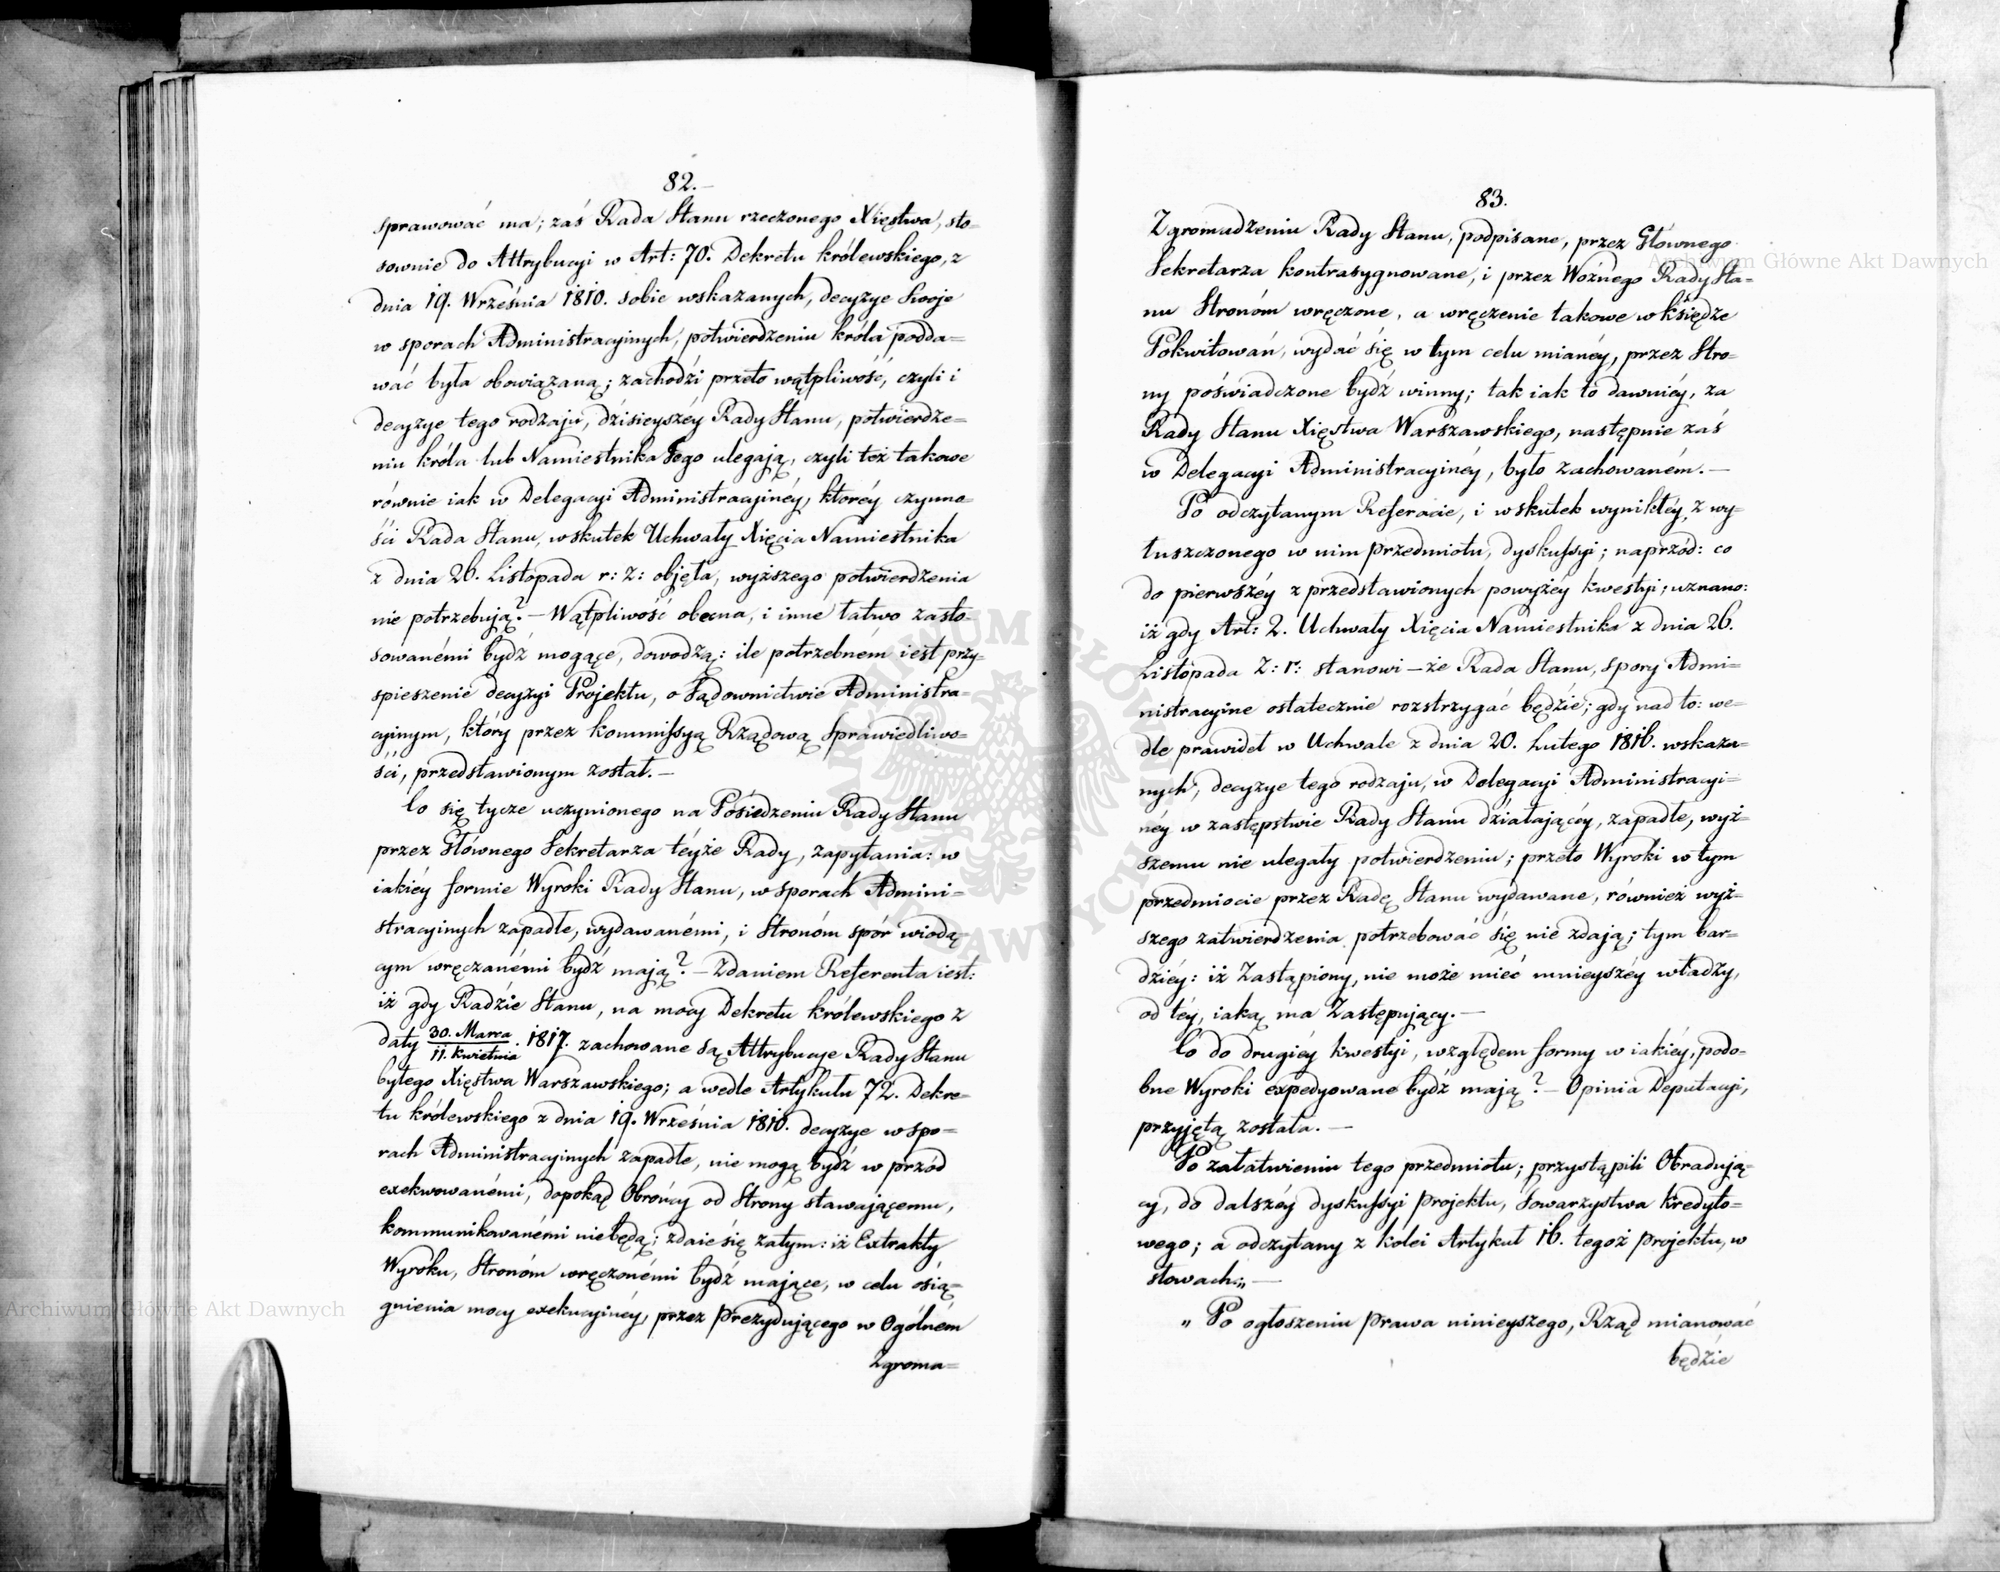 82.—
sprawować ma; zaś Rada Stanu rzeczonego Xięstwa, sto-
sownie do Attrybucyi w Art: 70. Dekretu królewskiego, z
dnia 19. Września 1810. sobie wskazanych, decyzye swoje
w sporach Administracyinych, potwierdzeniu króla podda=
wać była obowiązaną; zachodzi przeto wątpliwość, czyli i
decyzye tego rodzaju, dzisieyszéy Rady Stanu, potwierdze=
niu króla lub Namiestnika Jego ulegają, czyli też takowe
równie iak w Delegacyi Administracyinéy, któréy czynno=
ści Rada Stanu, wskutek Uchwały Xięcia Namiestnika
z dnia 26. Listopada r: z: objęła, wyższego potwierdzenia
nie potrzebują? — Wątpliwość obecna, i inne łatwo zasto-
sowanémi bydź mogące, dowodzą: ile potrzebném iest przy=
spieszenie decyzyi Projektu, o Sądownictwie Administra=
cyinym, który przez kommissyą Rządową Sprawiedliwo=
ści, przedstawionym został.—
Co się tycze uczynionego na Posiedzeniu Rady Stanu
przez Głównego Sekretarza téyże Rady, zapytania: w
iakiéy formie Wyroki Rady Stanu, w sporach Admini=
stracyinych zapadłe, wydawanémi, i Stronóm spór wiodą=
cym wręczanémi bydź mają? — Zdaniem Referenta iest:
iż gdy Radzie Stanu, na mocy Dekretu królewskiego z
daty 30. Marca / 11. kwietnia . 1817. zachowane są Attrybucye Rady Stanu
byłego Xięstwa Warszawskiego; a wedle Artykułu 72. Dekre=
tu królewskiego z dnia 19. Września 1810. decyzye w spo=
rach Administracyinych zapadłe, nie mogą bydź w przód
exekwowanémi, dopokąd Obrońcy od Strony stawającemu,
kommunikowanémi nie będą; zdaie się zatym: iż Extrakty
Wyroku, Stronóm wręczonémi bydź mające, w celu osią=
gnienia mocy exekucyinéy, przez Prezydującego w Ogólném
Zgroma=
83.
Zgromadzeniu Rady Stanu, podpisane, przez Głównego
Sekretarza kontrasygnowane, i przez Woźnego Rady Sta=
nu Stronóm wręczone, a wręczenie takowe w księdze
Pokwitowań, wydać się w tym celu mianéy, przez Stro=
ny poświadczone bydź winny; tak iak to dawniéy, za
Rady Stanu Xięstwa Warszawskiego, następnie zaś
w Delegacyi Administracyinéy, było zachowaném.—
Po odczytanym Referacie, i w skutek wynikłéy, z wy=
łuszczonego w nim przedmiotu, dyskussyi; naprzód: co
do pierwszéy z przedstawionych powyżéy kwestyi; uznano:
iż gdy Art: 2. Uchwały Xięcia Namiestnika z dnia 26.
Listopada z: r: stanowi — że Rada Stanu, spory Admi=
nistracyine ostatecznie rozstrzygać będzie; gdy nad to: we=
dle prawideł w Uchwale z dnia 20. Lutego 1816. wskaza=
nych, decyzye tego rodzaju, w Delegacyi Administracyi=
néy w zastępstwie Rady Stanu działającéy, zapadłe, wyż=
szemu nie ulegały potwierdzeniu; przeto Wyroki w tym
przedmiocie przez Radę Stanu wydawane, również wyż=
szego zatwierdzenia potrzebować się nie zdają; tym bar=
dziéy: iż Zastąpiony, nie może mieć mnieyszéy władzy,
od téy, iaką ma Zastępujący.—
Co do drugiéy kwestyi, względem formy w iakiéy, podo=
bne Wyroki expedyowane bydź mają? — Opinia Deputacyi,
przyjętą została.—
Po załatwieniu tego przedmiotu; przystąpili Obradują=
cy, do dalszéy dyskussyi projektu, Towarzystwa Kredyto=
wego; a odczytany z kolei Artykuł 16. tegoż projektu, w
słowach:„ —
„ Po ogłoszeniu prawa ninieyszego, Rząd mianować
będzie
Archiwum Główne Akt Dawnych
Archiwum Główne Akt Dawnych
ARCHIWUM GŁÓWNE AKT DAWNYCH